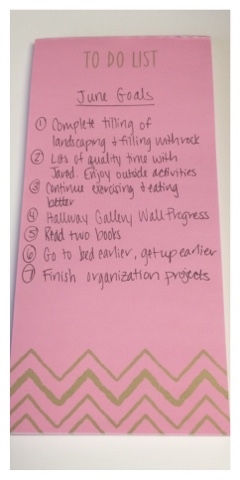 TO DO LIST
June Goals
① Complete tilling of
landscaping & filling with rock
② Lots of quality time with
Jarod. Enjoy outside activities
③ Continue exercising & eating
better
④ Hallway Gallery Wall Progress
⑤ Read two books
⑥ Go to bed earlier, get up earlier
⑦ Finish organization projects